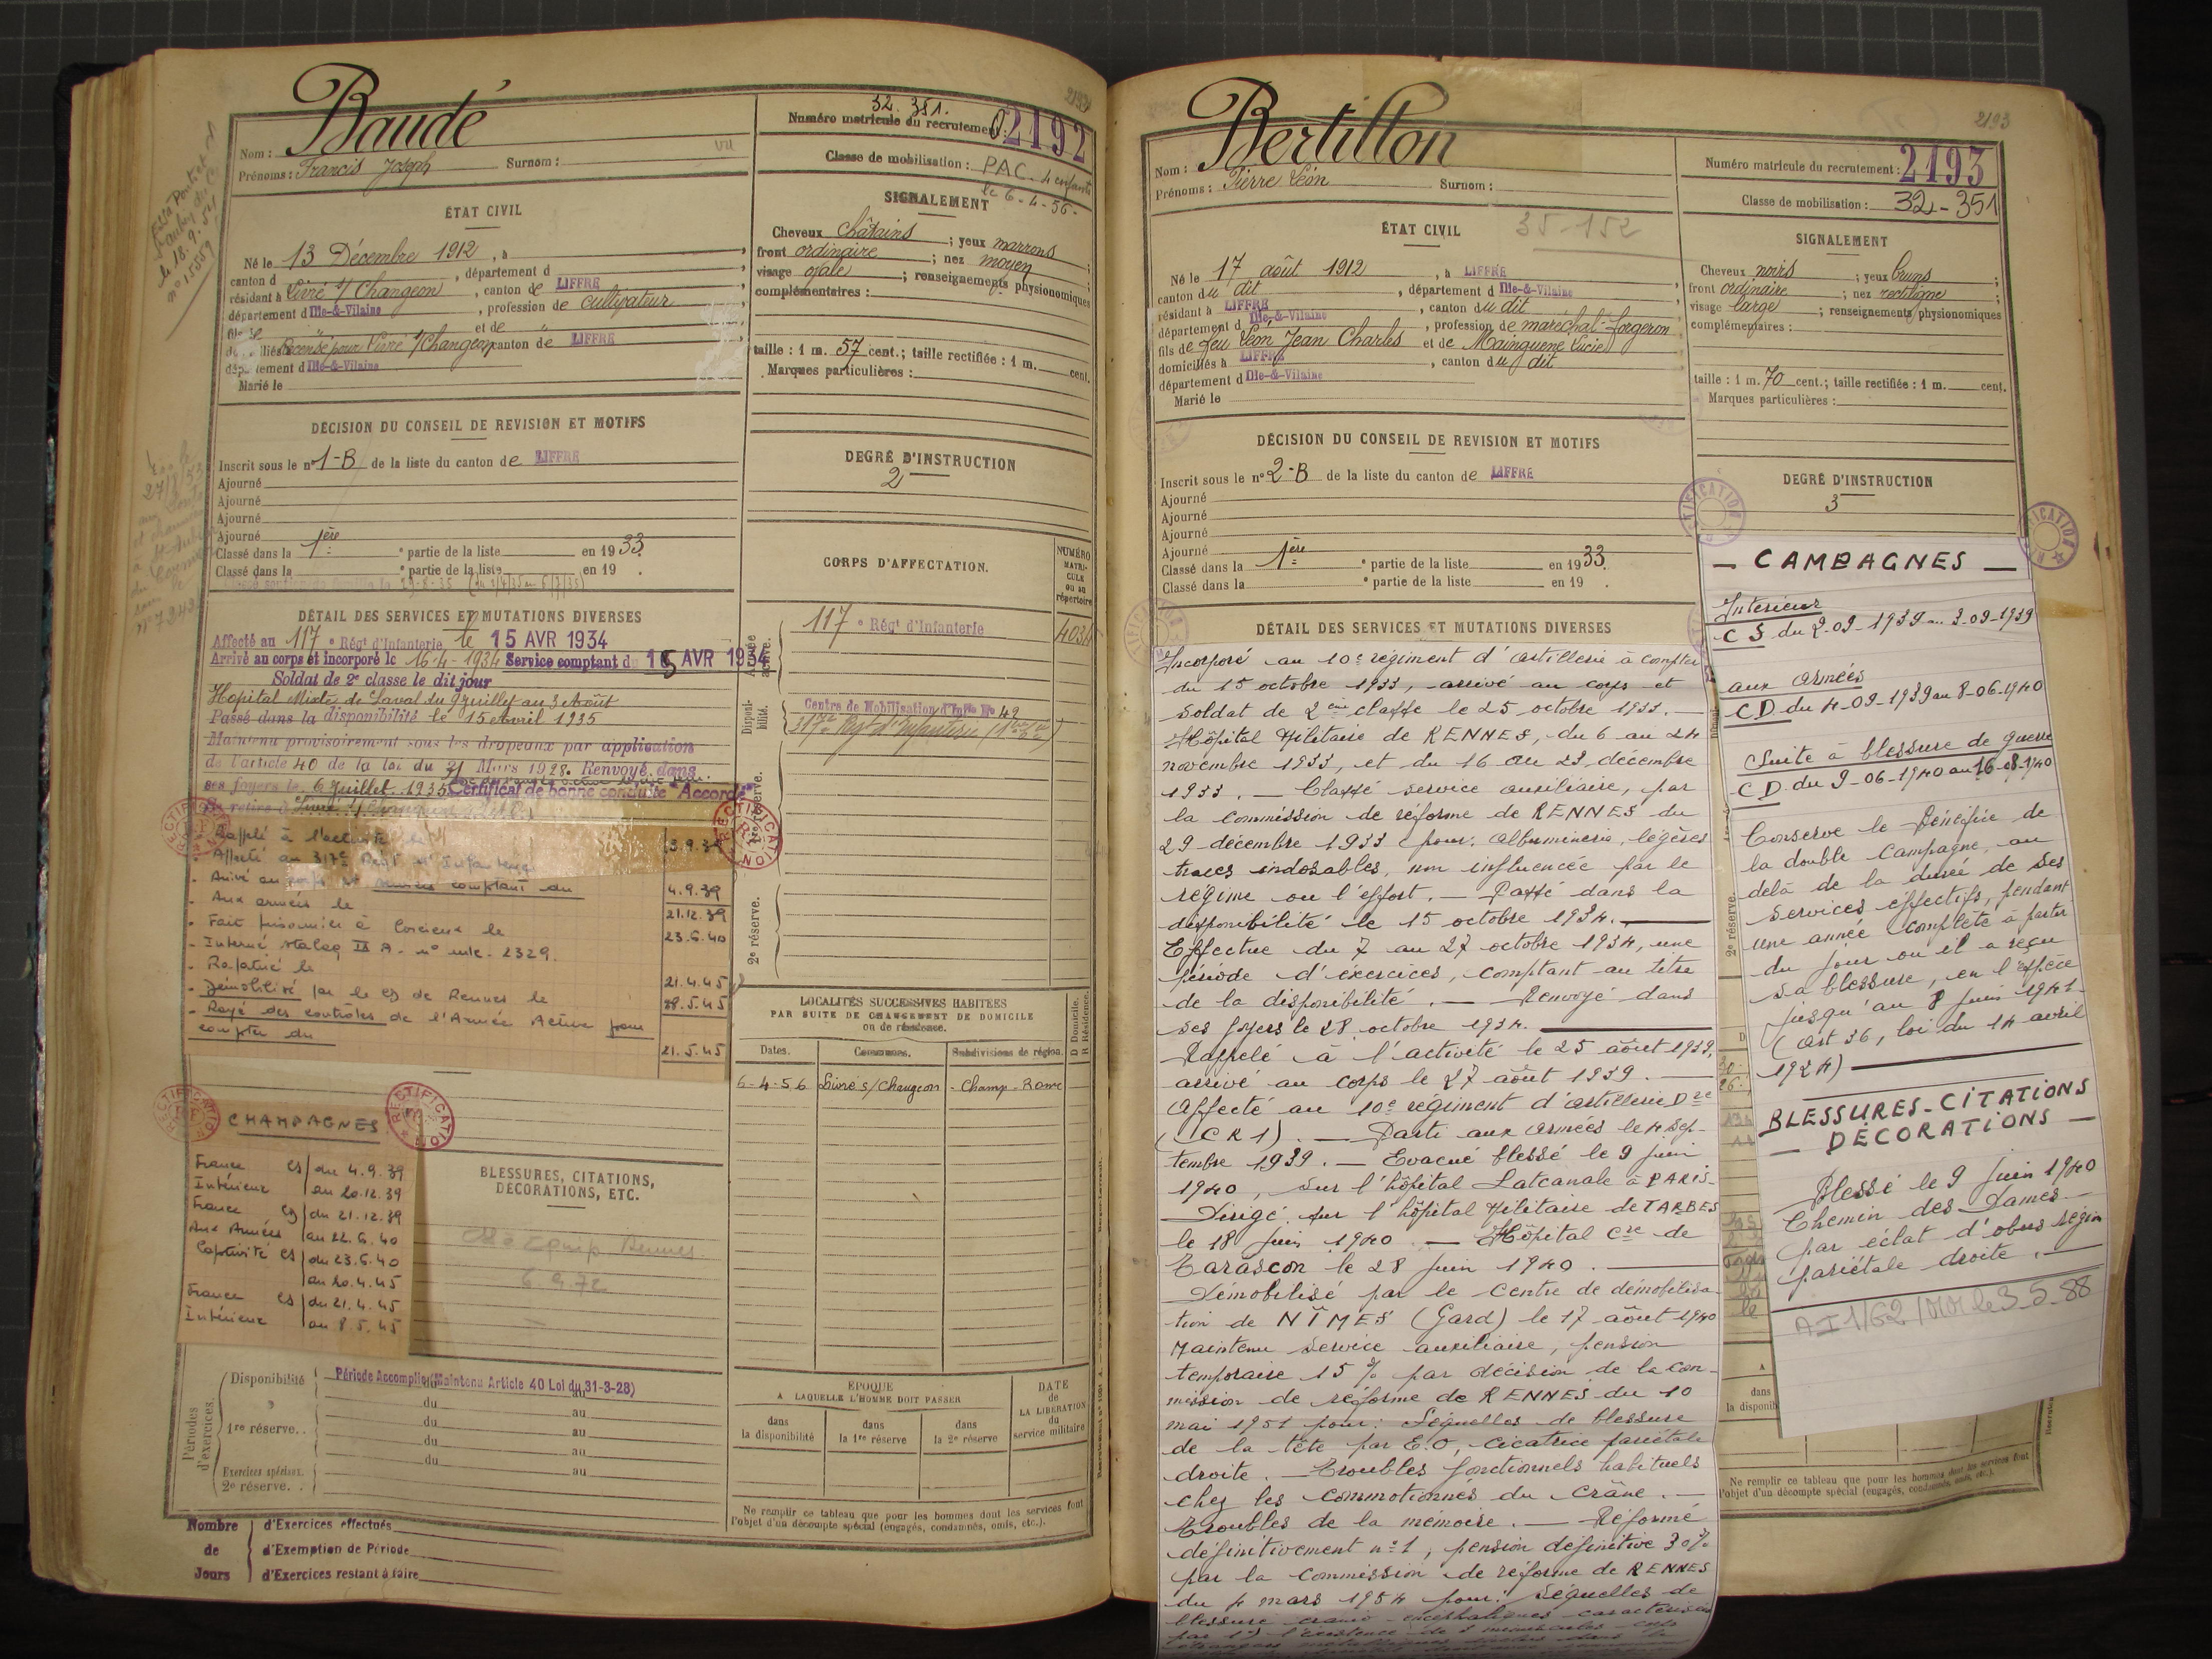 2192
Baudé
Nom :
Prénoms : Francis Joseph
Surnom :
32.351.
Numéro matricule du recrutement : 2192
Classe de mobilisation : PAC - 4 enfants
le 6-4-56-
ÉTAT CIVIL
Né le 13 Décembre 1912, à
canton d , département d
résidant à Livré s/ Changeon, canton de LIFFRÉ
département d Ille-&-Vilaine, profession de cultivateur
et de
recensé pour Livré s/ Changeon canton de LIFFRÉ
département d Ille-&-Vilaine
Marié le
SIGNALEMENT
Cheveux châtains ; yeux marrons ;
front ordinaire ; nez moyen ;
visage ovale ; renseignements physionomiques
complémentaires :
taille : 1 m. 57 cent. ; taille rectifiée : 1 m. cent.
Marques particulières :
DÉCISION DU CONSEIL DE REVISION ET MOTIFS
Inscrit sous le n° 1-B de la liste du canton de LIFFRÉ
Ajourné
Ajourné
Ajourné
Ajourné
Classé dans la 1ère partie de la liste en 1933.
Classé dans la e partie de la liste en 19 .
DEGRÉ D'INSTRUCTION
2
DÉTAIL DES SERVICES ET MUTATIONS DIVERSES
Affecté au 117e Régt d'Infanterie le 15 AVR 1934
Arrivé au corps et incorporé le 16-4-1934 Service comptant du 15 AVR 1934
Soldat de 2e classe le dit jour
Hopital Mixte de Laval du 9 juillet au 3 Août
Passé dans la disponibilité le 15 Avril 1935
Maintenu provisoirement sous les drapeaux par application
de l'article 40 de la loi du 31 Mars 1928. Renvoyé dans
ses foyers le 6 Juillet 1935 Certificat de bonne conduite "Accordé"
Rappelé à l'activité le 3.9.39
Affecté au 317e Régt d'Infanterie
Arrivé au corps et services comptant du 4.9.39
Aux armées le 21.12.39
Fait prisonnier à Corcieux le 23.6.40
Interné stalag IX A - n° mle. 2329.
Rapatrié le 21.4.45
Démobilisé par le CD de Rennes le 28.5.45
Rayé des contrôles de l'Armée Active pour
compter du 21.5.45
CORPS D'AFFECTATION.
NUMÉRO MATRICULE ou au répertoire
Armée active.
117e Régt d'Infanterie
Disponibilité.
Centre de Mobilisation d'Inf'ie No 42
317e Regt d'Infanterie
1re réserve.
2e réserve.
RECTIFICATION
CHAMPAGNES
France CS du 4.9.39
Intérieur au 20.12.39
France CD du 21.12.39
Aux Armées au 22.6.40
Captivité CS du 23.6.40
au 20.4.45
France CS du 21.4.45
Intérieur au 8.5.45
BLESSURES, CITATIONS,
DÉCORATIONS, ETC.
6.9.72
LOCALITÉS SUCCESSIVES HABITÉES
PAR SUITE DE CHANGEMENT DE DOMICILE
ou de résidence.
Dates. Communes. Subdivisions de région. D Domicile. R Résidence.
6-4-56 Livré s/Changeon
Périodes d'exercices.
Disponibilité Période Accomplie (Maintenu Article 40 Loi du 31-3-28)
du au
1re réserve..
du au
du au
du au
Exercices spéciaux.
2e réserve. .
du au
ÉPOQUE
A LAQUELLE L'HOMME DOIT PASSER
dans la disponibilité
dans la 1re réserve
dans la 2e réserve
DATE de LA LIBÉRATION du service militaire
Ne remplir ce tableau que pour les hommes dont les services font
l'objet d'un décompte spécial (engagés, condamnés, omis, etc.).
Nombre de Jours
d'Exercices effectués
d'Exemption de Période
d'Exercices restant à faire
2193
Bertillon
Nom :
Prénoms : Pierre Léon
Surnom :
Numéro matricule du recrutement : 2193
Classe de mobilisation : 32-351
ÉTAT CIVIL
35-152
Né le 17 août 1912, à LIFFRÉ
canton du dit, département d Ille-&-Vilaine
résidant à LIFFRÉ, canton du dit
département d Ille-&-Vilaine, profession de maréchal-forgeron
fils de feu Léon Jean Charles et de Mainguené Lucie
domiciliés à LIFFRÉ, canton du dit
département d Ille-&-Vilaine
Marié le
SIGNALEMENT
Cheveux noirs ; yeux bruns ;
front ordinaire ; nez rectiligne ;
visage large ; renseignements physionomiques
complémentaires :
taille : 1 m. 70 cent. ; taille rectifiée : 1 m. cent.
Marques particulières :
DÉCISION DU CONSEIL DE REVISION ET MOTIFS
Inscrit sous le n° 2-B de la liste du canton de LIFFRÉ
Ajourné
Ajourné
Ajourné
Ajourné
Classé dans la 1ère partie de la liste en 1933.
Classé dans la e partie de la liste en 19 .
DEGRÉ D'INSTRUCTION
3
DÉTAIL DES SERVICES ET MUTATIONS DIVERSES
Incorporé au 10e régiment d'artillerie à compter
du 15 octobre 1933, arrivé au corps et
soldat de 2ème classe le 25 octobre 1933. —
Hôpital Militaire de RENNES, du 6 au 24
novembre 1933, et du 16 au 23 décembre
1933. — Classé service auxiliaire, par
la commission de réforme de RENNES du
29 décembre 1933 pour: albuminerie, légères
traces indosables, non influencée par le
régime ou l'effort. — Passé dans la
disponibilité le 15 octobre 1934. —
Effectue du 7 au 27 octobre 1934, une
période d'exercices, comptant au titre
de la disponibilité. — Renvoyé dans
ses foyers le 28 octobre 1934. —
Rappelé à l'activité le 25 août 1939,
arrivé au corps le 27 août 1939. —
Affecté au 10e régiment d'artillerie Dre
(CR1). — Parti aux armées le 4 sep-
tembre 1939. — Evacué blessé le 9 juin
1940, sur l'hôpital Latcanale à PARIS-
Dirigé sur l'hôpital Militaire de TARBES
le 18 juin 1940. — Hôpital Cre de
Tarascon le 28 juin 1940. —
Démobilisé par le Centre de démobilisa-
tion de NÎMES (Gard) le 17 août 1940
Maintenu service auxiliaire, pension
temporaire 15 % par décision de la com-
mission de réforme de RENNES du 10
mai 1951 pour: Séquelles de blessure
de la tête par E.O, cicatrice pariétale
droite. — Troubles fonctionnels habituels
chez les commotionnés du crâne. —
Troubles de la mémoire. — Réformé
définitivement n°1, pension définitive 30%
par la Commission de réforme de RENNES
du 4 mars 1954 pour: Séquelles de
blessure cranio-encéphaliques caractérisées
— CAMPAGNES —
Intérieur
CS du 2-09-1939 au 3-09-1939
aux armées
CD du 4-09-1939 au 8-06-1940
Suite à blessure de guerre
CD du 9-06-1940 au 16-08-1940
Conserve le Bénéfice de
la double Campagne, au
delà de la durée de ses
services effectifs, pendant
une année complète à partir
du jour où il a reçu
sa blessure, en l'espèce
jusqu'au 8 juin 1941-
(art 36, loi du 14 avril
1924) —
BLESSURES-CITATIONS
— DÉCORATIONS —
Blessé le 9 juin 1940
Chemin des Dames —
par éclat d'obus région
pariétale droite. —
Ne remplir ce tableau que pour les hommes dont les services font
l'objet d'un décompte spécial (engagés, condamnés, omis, etc.).